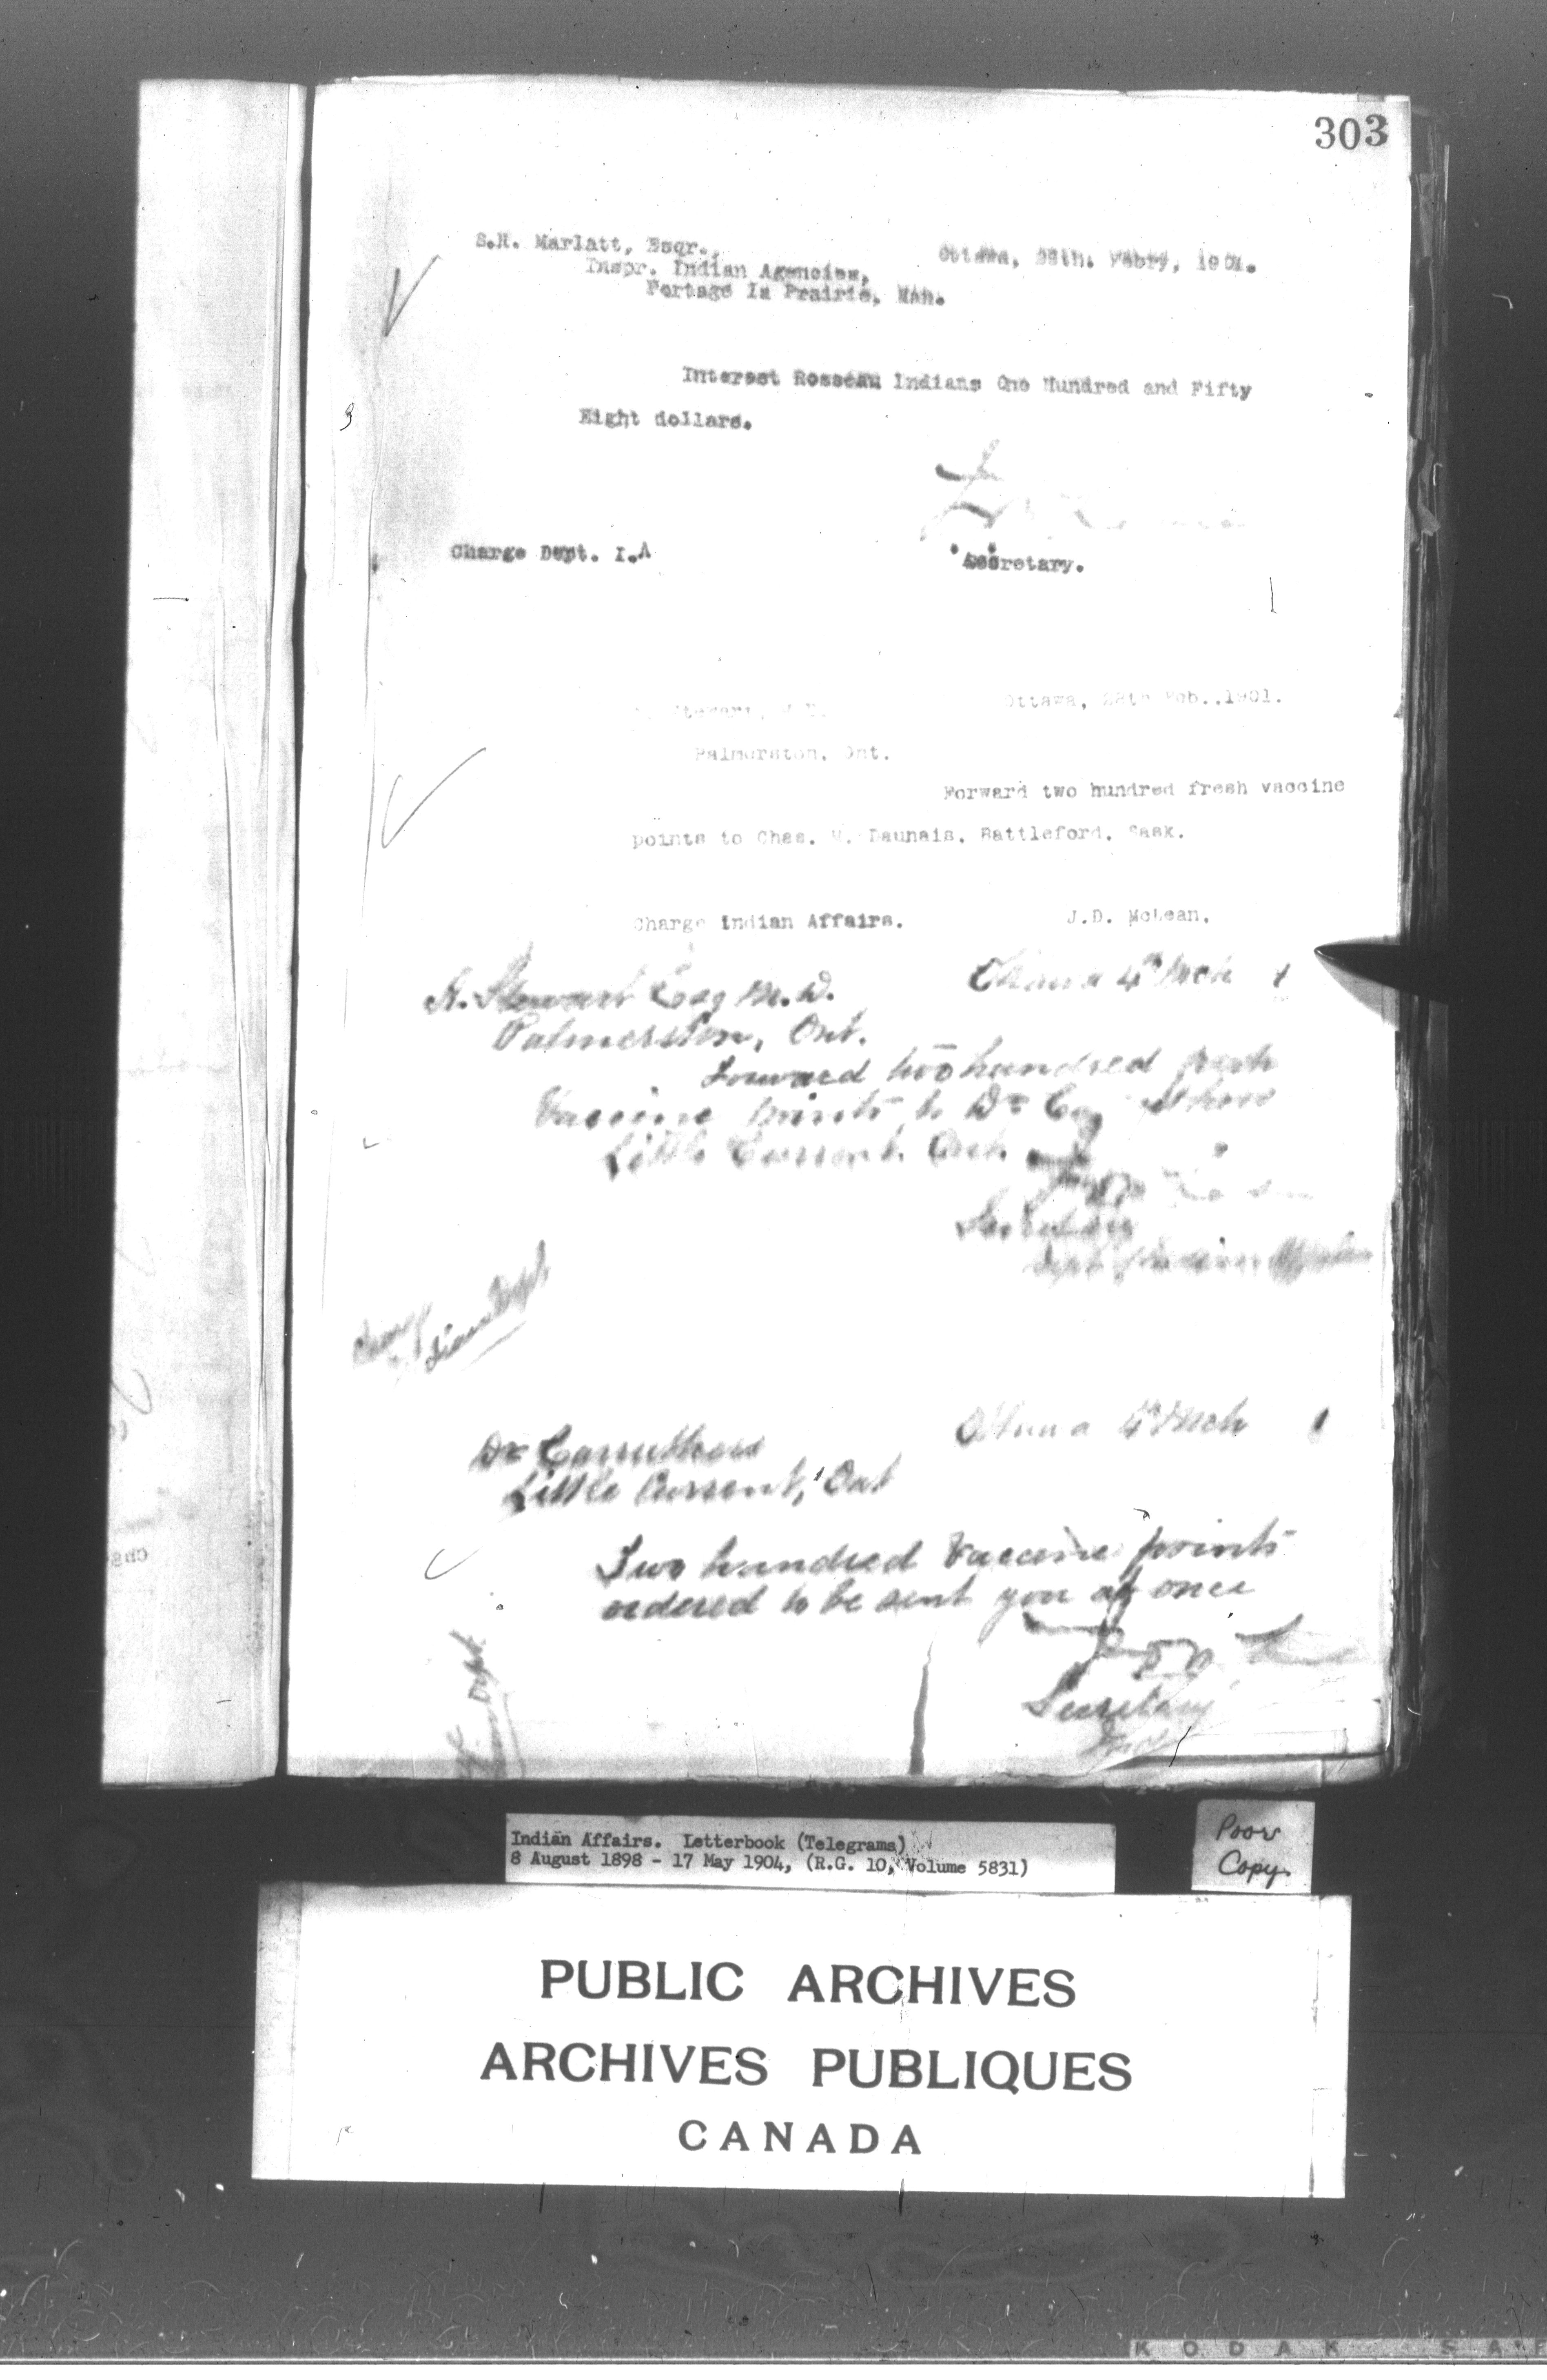 303
S.R. Marlatt, Esqr.,
Ottawa, 28th. Febry, 1901.
Inspr. Indian Agencies,
Portage la Prairie, Man.
Interest Rosseau Indians One Hundred and Fifty
Eight dollars.
Charge Dept. I.A
Secretary.
Stewart, M.D.
Ottawa, 28th Feb..1901.
Palmerston, Ont.
Forward two hundred fresh vaccine
points to Chas. Daunais, Battleford, Sask.
Charge Indian Affairs.
J.D. McLean.
A. Stewart Esq M.D.
Ottawa 4th Mch 1
Palmerston, Ont.
Forward two hundred fresh
Vaccine points to Dr Carruthers
Little Current, Ont
Secretary
Dept Indian Affairs
Charge
Indian Dept
Dr Carruthers
Ottawa 4th Mch 1
Little Current, Ont
Two hundred Vaccine points
ordered to be sent you at once
Secretary
Dept
Indian Affairs. Letterbook (Telegrams)
8 August 1898 - 17 May 1904, (R.G. 10, Volume 5831)
Poor
Copy.
PUBLIC ARCHIVES
ARCHIVES PUBLIQUES
CANADA
KODAK SAFE